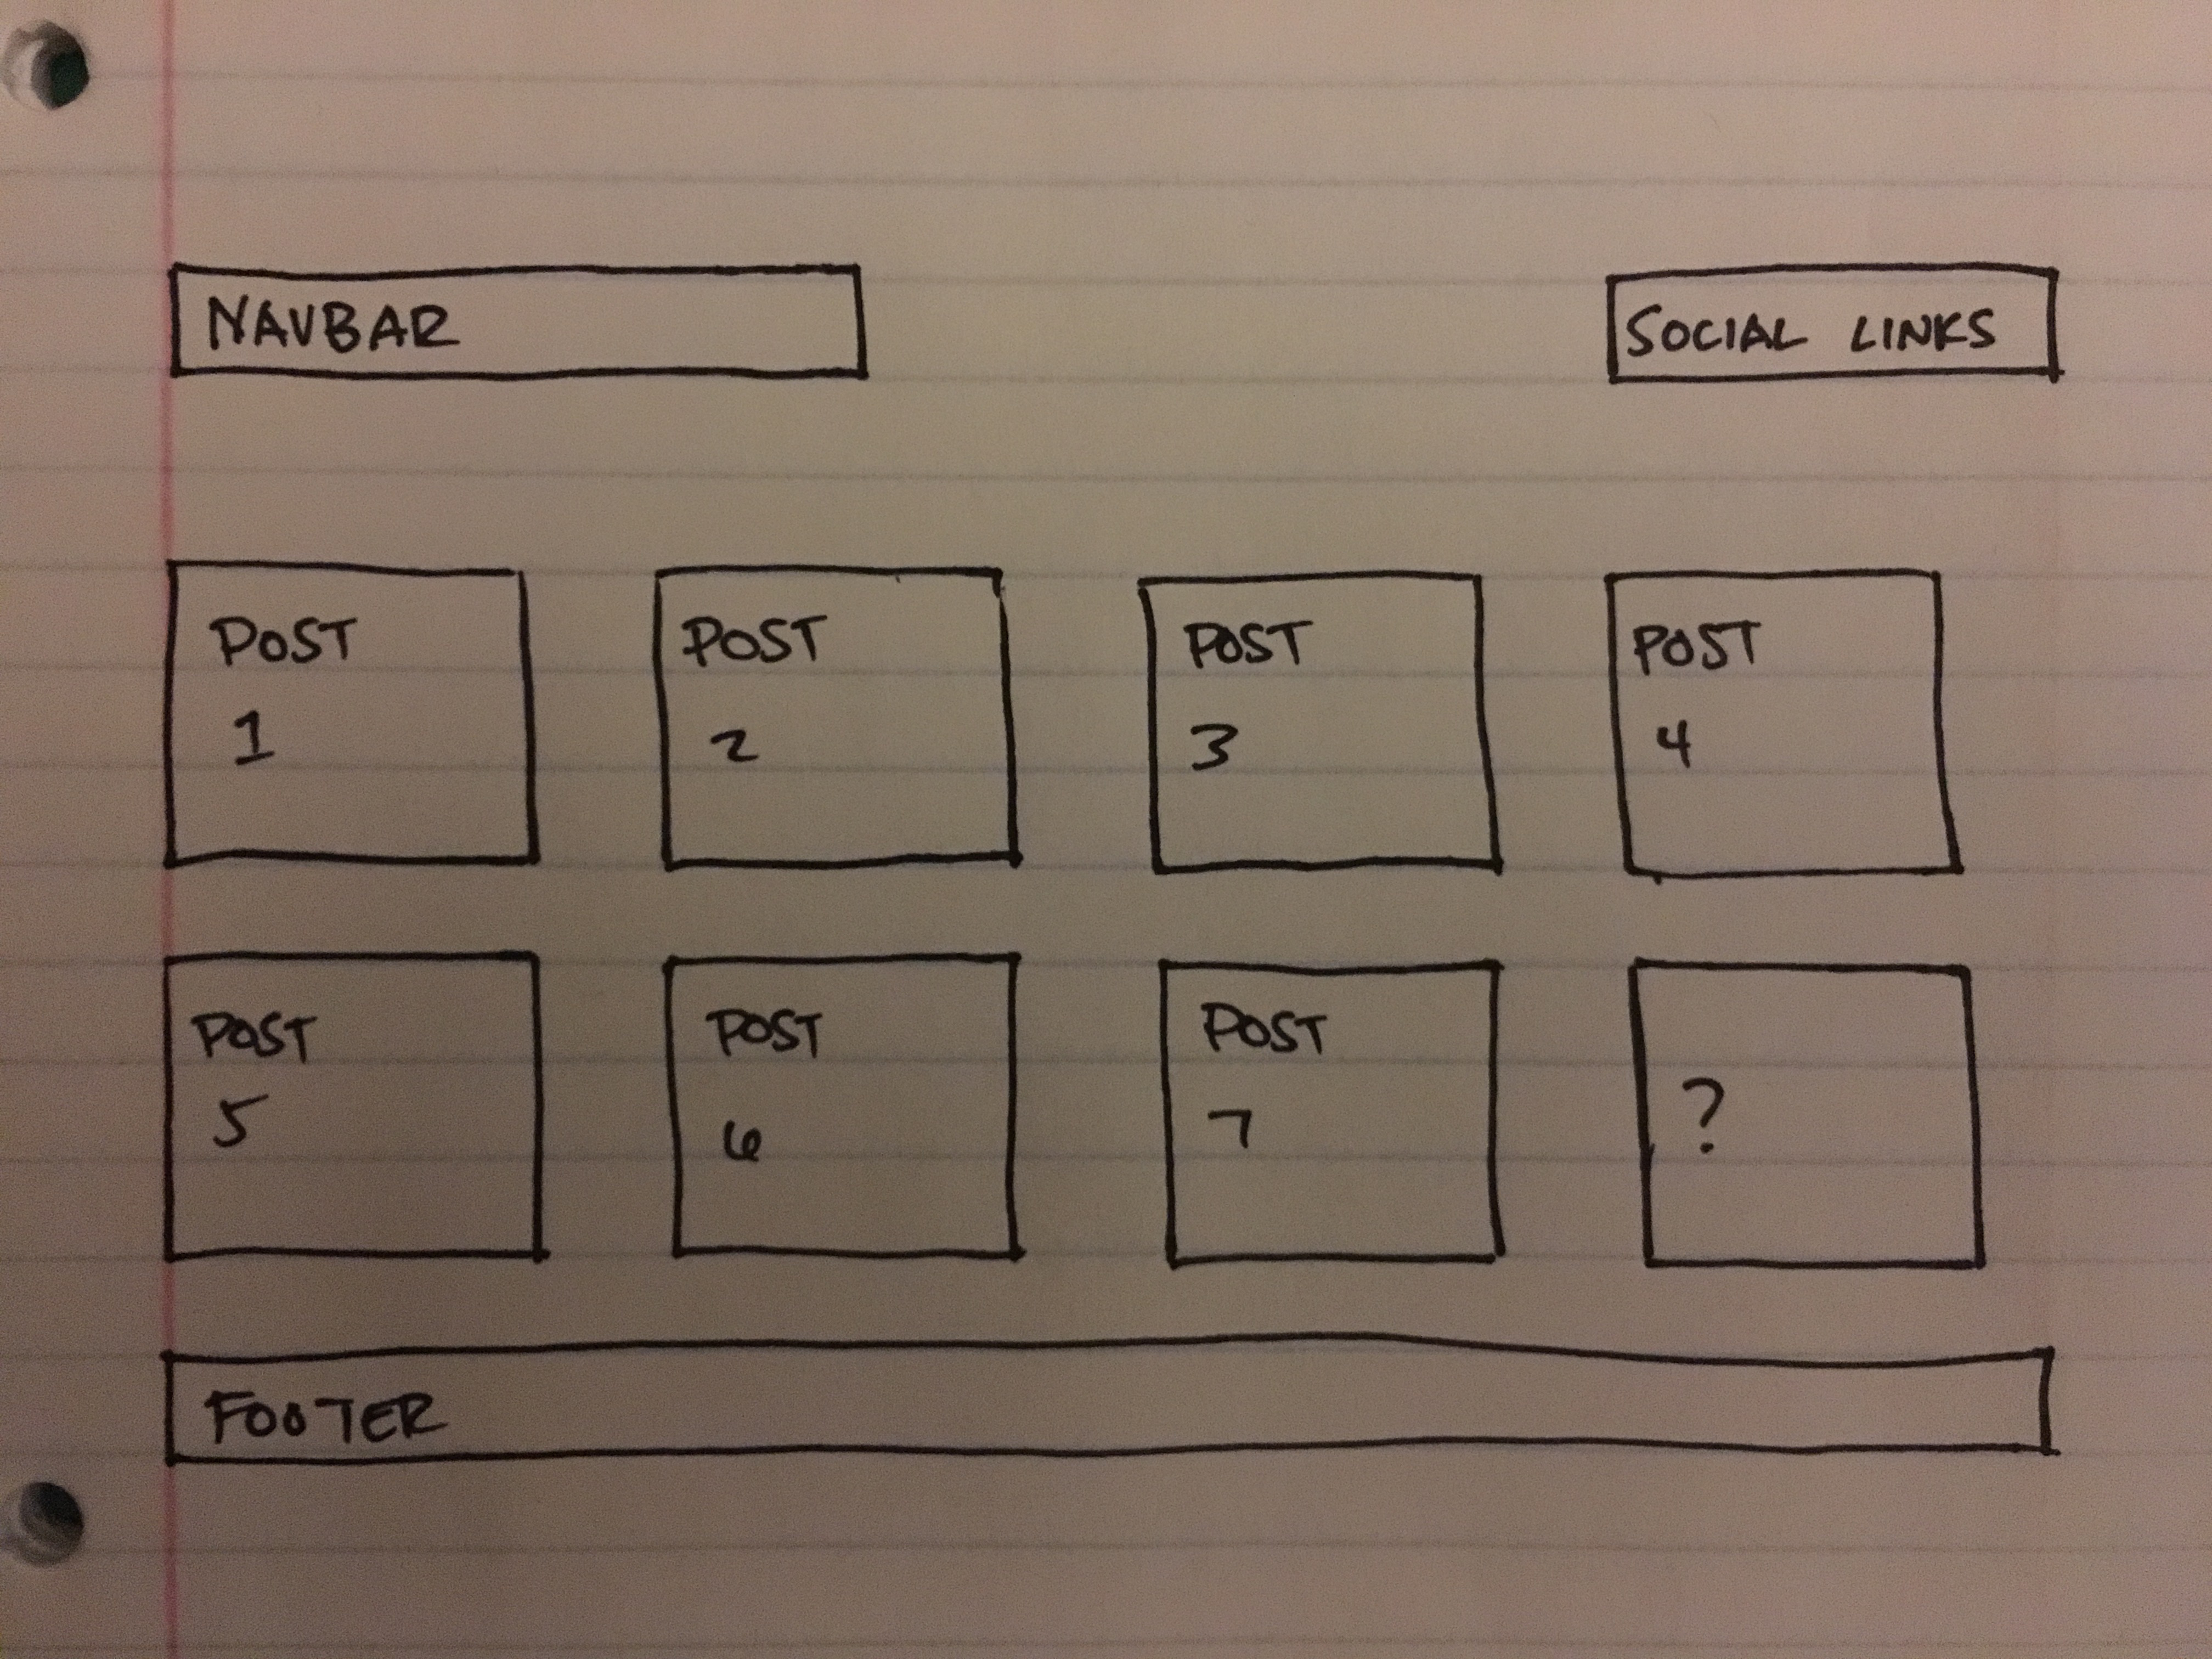 NAVBAR
SOCIAL LINKS
POST
1
POST
2
POST
3
POST
4
POST
5
POST
6
POST
7
?
FOOTER